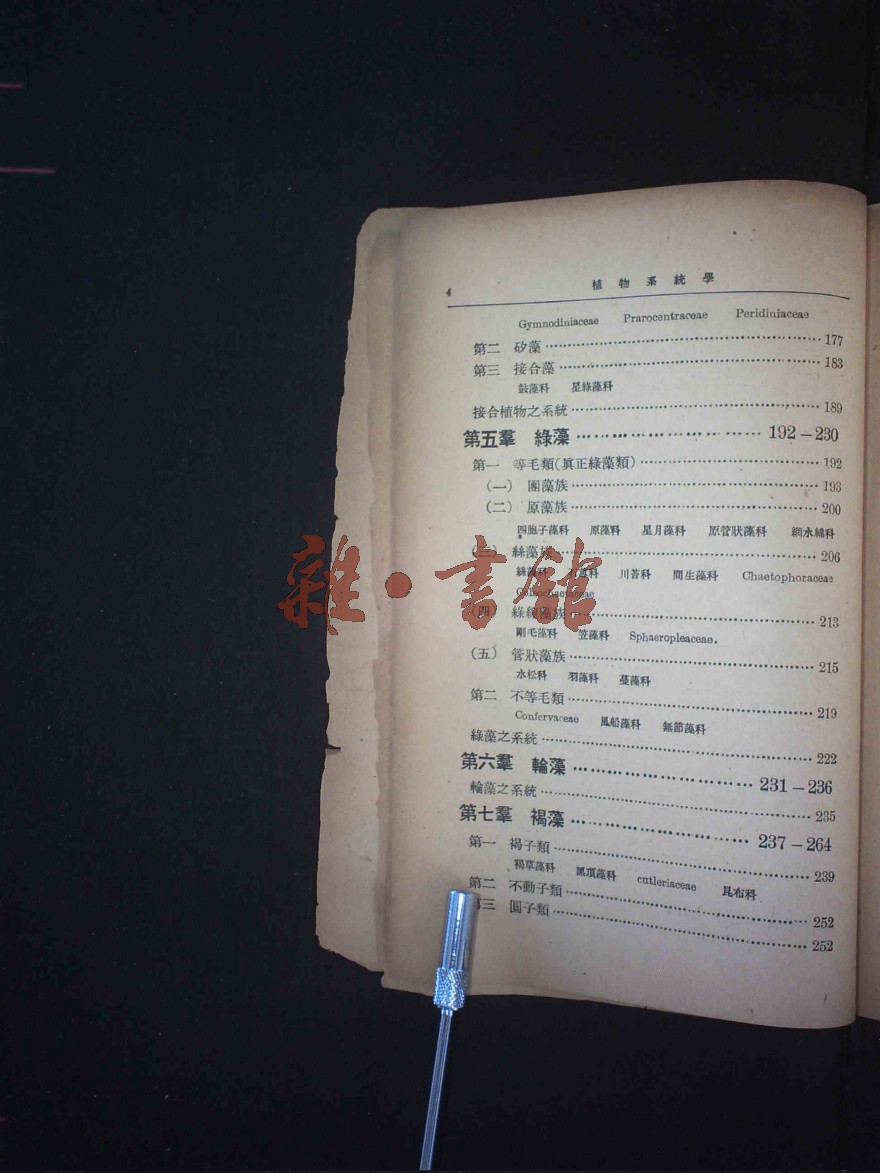 4 植物系統學
Gymnodiniaceae Prarocentraceae Peridiniaceae
第二 矽藻 177
第三 接合藻 183
鼓藻科 星綠藻科
接合植物之系統 189
第五羣 綠藻 192-230
第一 等毛類(眞正綠藻類) 192
(一) 團藻族 193
(二) 原藻族 200
四胞子藻科 原藻科 星月藻科 原管狀藻科 網水綿科
(三) 絲藻族 206
絲藻科 科 川苔科 間生藻科 Chaetophoraceae
Coleochaetaceae
(四) 綠 藻族 213
剛毛藻科 笠藻科 Sphaeropleaceae.
(五) 管狀藻族 215
水松科 羽藻科 蔓藻科
第二 不等毛類 219
Confervaceae 風船藻科 無節藻科
綠藻之系統 222
第六羣 輪藻 231-236
輪藻之系統 235
第七羣 褐藻 237-264
第一 褐子類 239
褐草藻科 黑頂藻科 cutleriaceae 昆布科
第二 不動子類 252
第三 圓子類 252
雜·書館